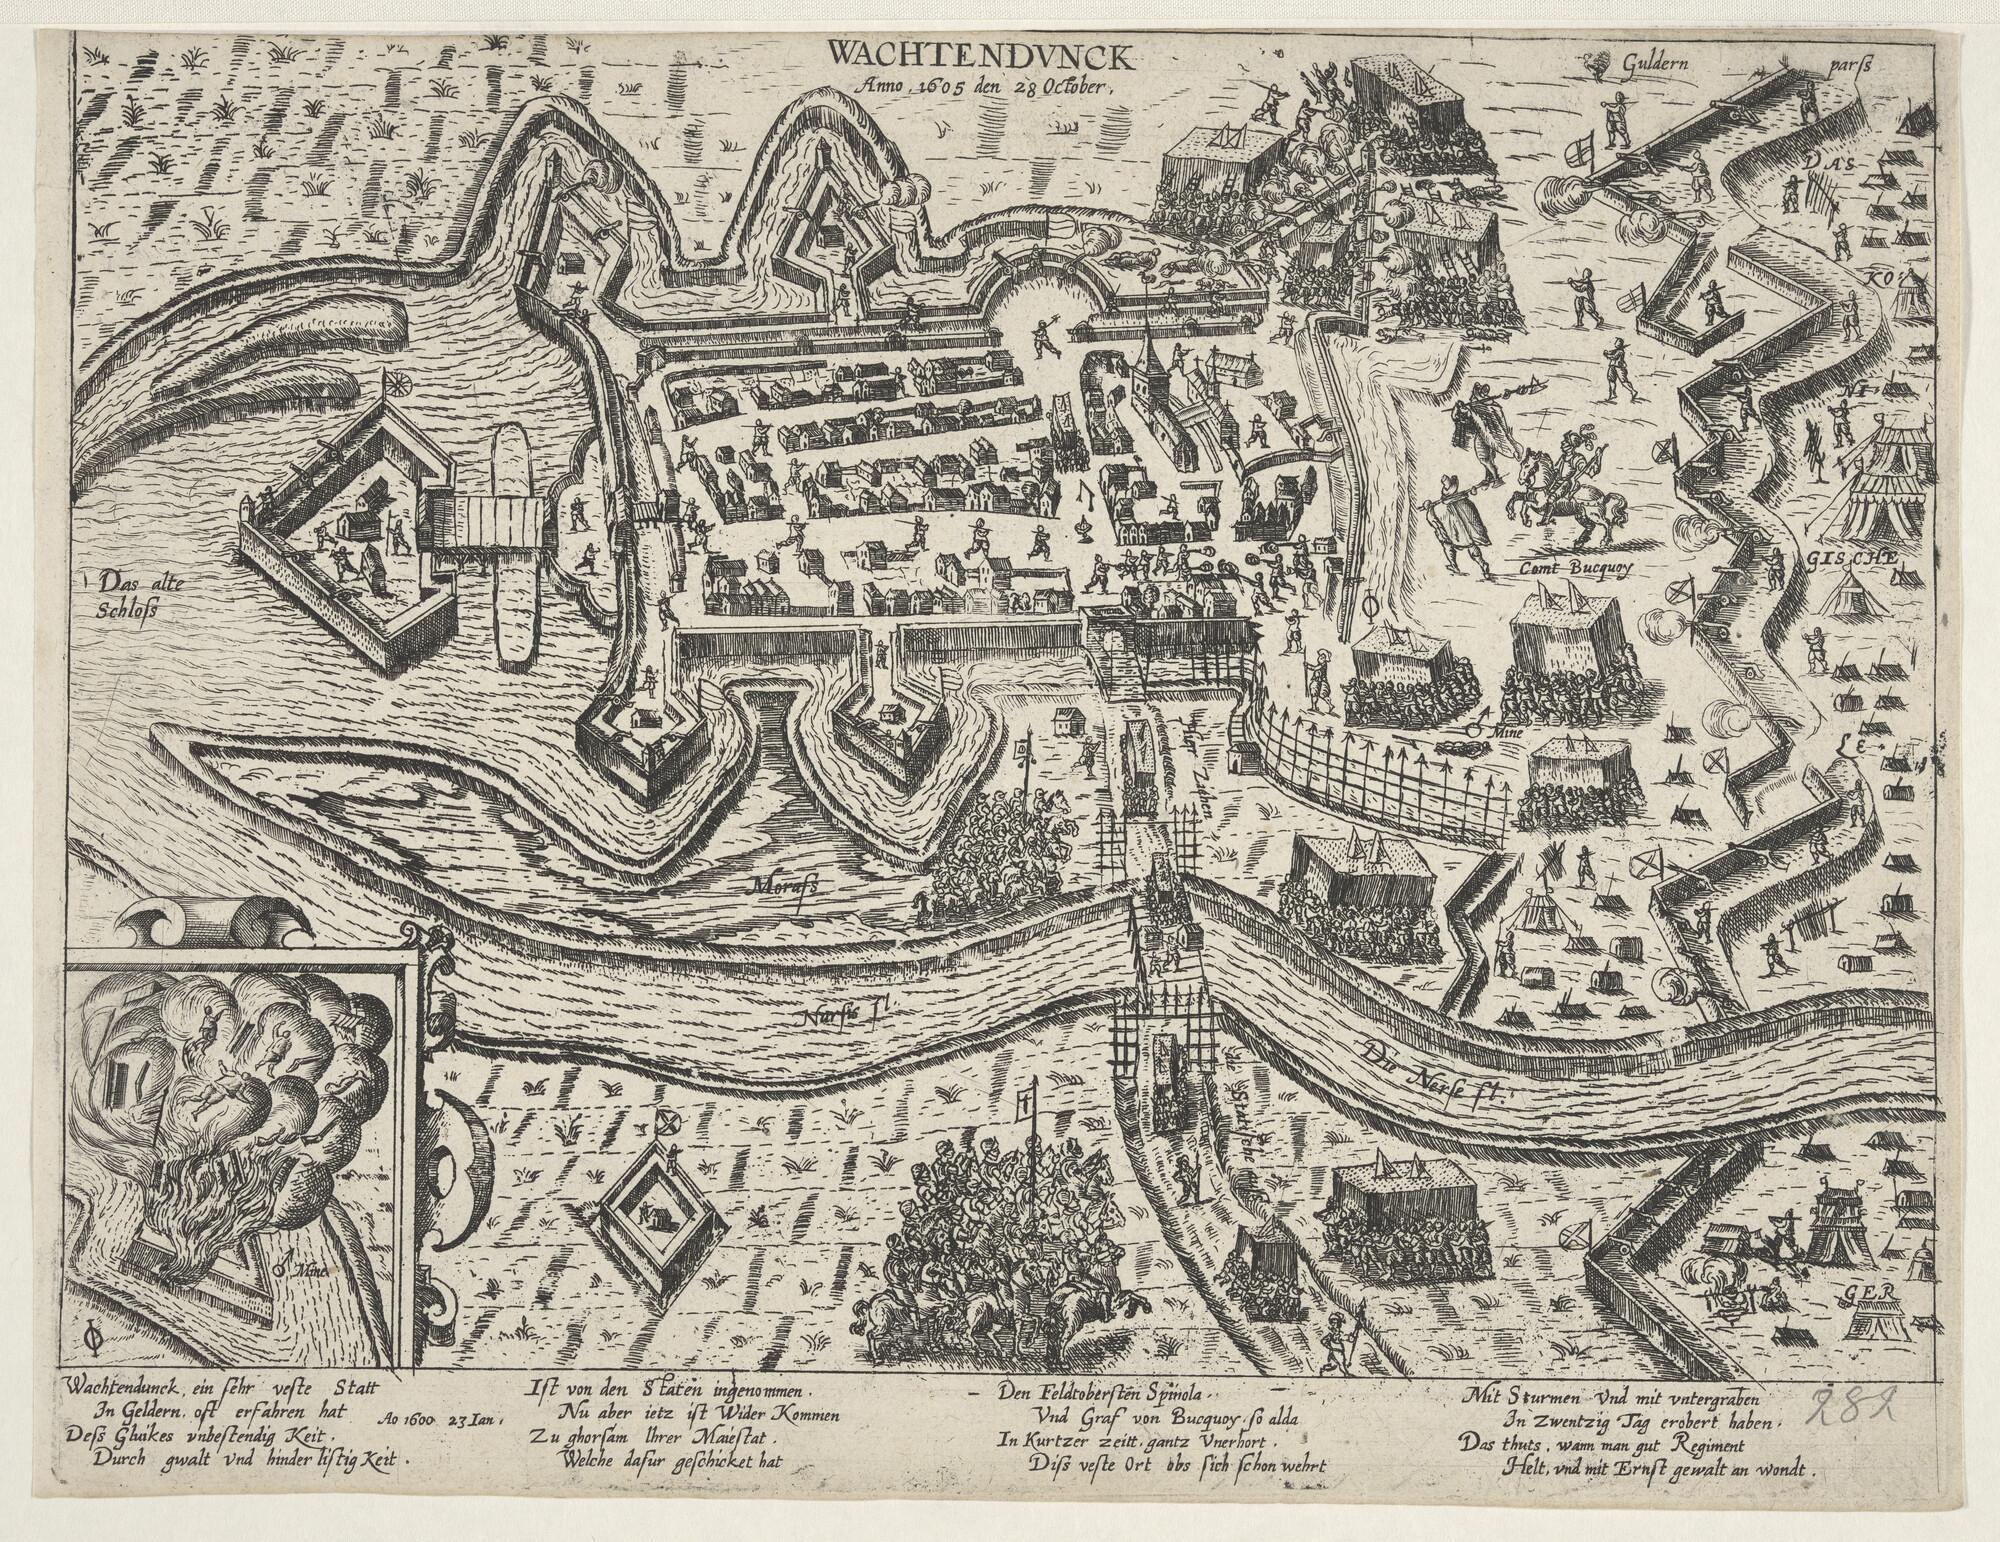 WACHTENDVNCK
Anno. 1605 den 28 October.
Guldern
parſs
DAS
KO
NI
GISCHE
LE
GER
Das alte
Schloſs
Comt Bucquoy
Mine
Hier Ziehen
die Statiſche
Moraſs
Nersis fl
Die Nerse fl.
Mine
Wachtendunck, ein ſehr veſte Statt
In Geldern, oft erfahren hat
Deſs Gluikes vnbeſtendig Keit.
Durch gwalt vnd hinder liſtig Keit.
Ao 1600 23 Ian.
Iſt von den Staten ingenommen.
Nu aber ietz iſt Wider Kommen
Zu ghorſam Ihrer Maieſtat.
Welche dafur geſchicket hat
Den Feldtoberſten Spinola.
Vnd Graf von Bucquoy, ſo alda
In Kurtzer zeitt, gantz Vnerhort.
Diſs veſte Ort obs ſich ſchon wehrt
Mit Sturmen Vnd mit vntergraben
In Zwentzig Tag erobert haben.
Das thuts, wann man gut Regiment
Helt, vnd mit Ernſt gewalt an wondt.
282